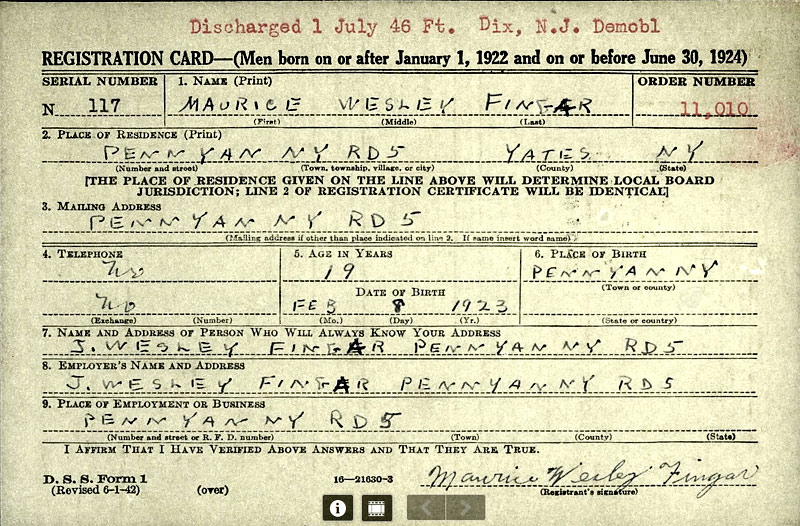 Discharged 1 July 46 Ft. Dix, N.J. Demobl
REGISTRATION CARD—(Men born on or after January 1, 1922 and on or before June 30, 1924)
SERIAL NUMBER 1. NAME (Print) ORDER NUMBER
N 117 MAURICE WESLEY FINGAR 11,010
(First) (Middle) (Last)
2. PLACE OF RESIDENCE (Print)
PENN YAN NY RD 5 YATES NY
(Number and street) (Town, township, village, or city) (County) (State)
[THE PLACE OF RESIDENCE GIVEN ON THE LINE ABOVE WILL DETERMINE LOCAL BOARD
JURISDICTION; LINE 2 OF REGISTRATION CERTIFICATE WILL BE IDENTICAL]
3. MAILING ADDRESS
PENN YAN NY RD 5
(Mailing address if other than place indicated on line 2. If same insert word same)
4. TELEPHONE 5. AGE IN YEARS 6. PLACE OF BIRTH
No 19 PENN YAN NY
DATE OF BIRTH (Town or county)
No FEB 8 1923
(Exchange) (Number) (Mo.) (Day) (Yr.) (State or country)
7. NAME AND ADDRESS OF PERSON WHO WILL ALWAYS KNOW YOUR ADDRESS
J. WESLEY FINGAR PENN YAN NY RD 5
8. EMPLOYER'S NAME AND ADDRESS
J. WESLEY FINGAR PENN YAN NY RD 5
9. PLACE OF EMPLOYMENT OR BUSINESS
PENN YAN NY RD 5
(Number and street or R. F. D. number) (Town) (County) (State)
I AFFIRM THAT I HAVE VERIFIED ABOVE ANSWERS AND THAT THEY ARE TRUE.
D. S. S. Form 1 16—21630-3 Maurice Wesley Fingar
(Revised 6-1-42) (over) (Registrant's signature)